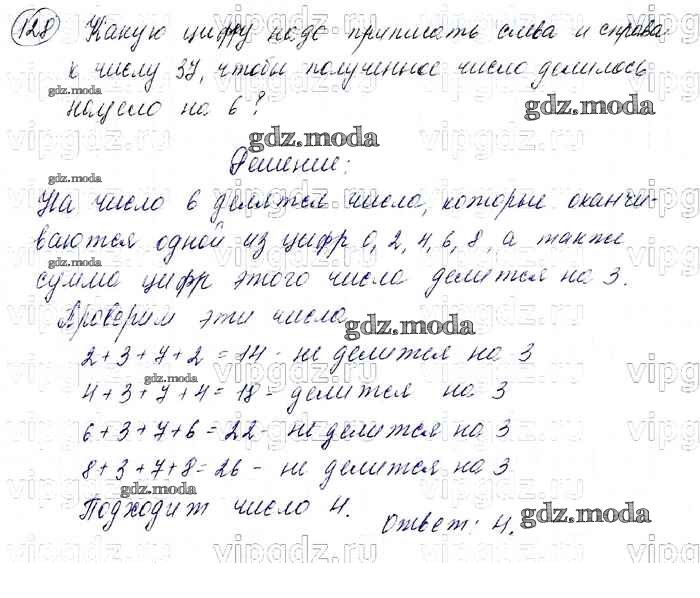 128 Какую цифру надо приписать слева и справа
к числу 37, чтобы полученное число делилось
gdz.moda
нацело на 6?
gdz.moda
gdz.moda
Решение:
gdz.moda
На число 6 делятся числа, которые оканчи-
ваются одной из цифр 0, 2, 4, 6, 8, а также
сумма цифр этого числа делится на 3.
Проверим эти числа
gdz.moda
2 + 3 + 7 + 2 = 14 - не делится на 3
gdz.moda
4 + 3 + 7 + 4 = 18 - делится на 3
6 + 3 + 7 + 6 = 22 - не делится на 3
8 + 3 + 7 + 8 = 26 - не делится на 3
gdz.moda
Подходит число 4.
Ответ: 4.
gdz.moda